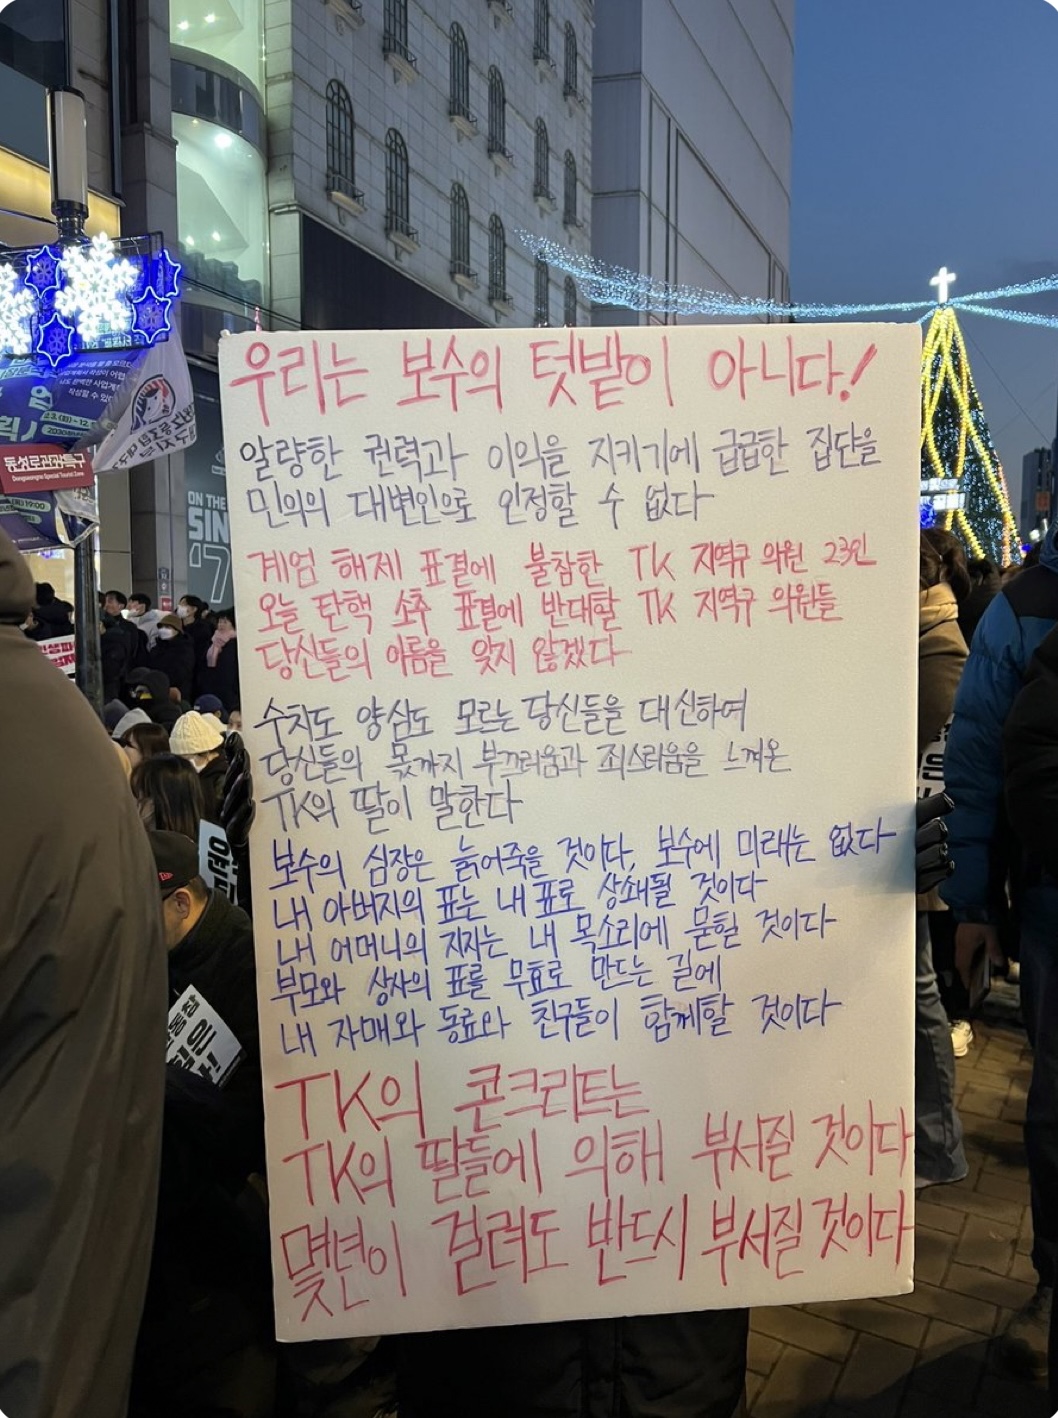 우리는 보수의 텃밭이 아니다!
알량한 권력과 이익을 지키기에 급급한 집단을
민의의 대변인으로 인정할 수 없다
계엄 해제 표결에 불참한 TK 지역구 의원 23인
오늘 탄핵 소추 표결에 반대할 TK 지역구 의원들
당신들의 이름을 잊지 않겠다
수치도 양심도 모르는 당신들을 대신하여
당신들의 몫까지 부끄러움과 죄스러움을 느껴온
TK의 딸이 말한다
보수의 심장은 늙어죽을 것이다, 보수에 미래는 없다
내 아버지의 표는 내 표로 상쇄될 것이다
내 어머니의 지지는 내 목소리에 묻힐 것이다
부모와 상사의 표를 무효로 만드는 길에
내 자매와 동료와 친구들이 함께할 것이다
TK의 콘크리트는
TK의 딸들에 의해 부서질 것이다
몇년이 걸려도 반드시 부서질 것이다
동성로관광특구
Dongseongno Special Tourist Zone
19:00
ON THE
SIN
'7